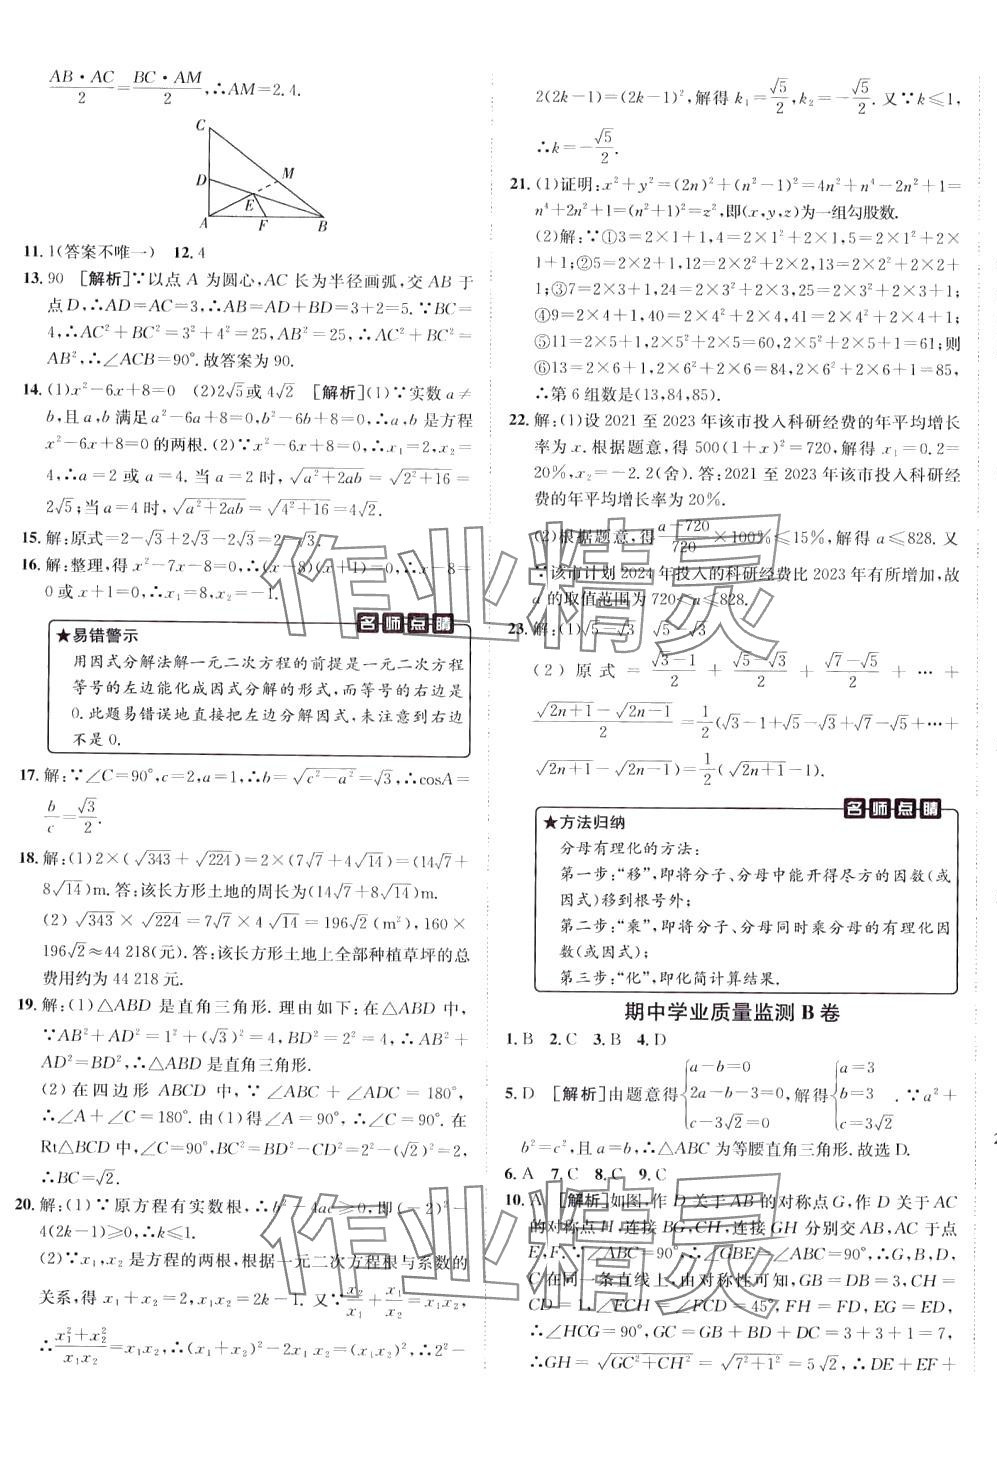 AB·AC/2=BC·AM/2,∴AM=2.4.
C
M
D
E
A F B
11.1(答案不唯一) 12.4
13.90 [解析]∵以点 A 为圆心,AC 长为半径画弧,交 AB 于
点 D,∴AD=AC=3,∴AB=AD+BD=3+2=5.∵BC=
4,∴AC²+BC²=3²+4²=25,AB²=25,∴AC²+BC²=
AB²,∴∠ACB=90°.故答案为 90.
14.(1)x²-6x+8=0 (2)2√5或 4√2 [解析](1)∵实数 a≠
b,且 a,b 满足 a²-6a+8=0,b²-6b+8=0,∴a,b 是方程
x²-6x+8=0 的两根.(2)∵x²-6x+8=0,∴x₁=2,x₂=
4,∴a=2 或 a=4.当 a=2 时,√(a²+2ab)=√(2²+16)=
2√5;当 a=4 时,√(a²+2ab)=√(4²+16)=4√2.
15.解:原式=2-√3+2√3-2√3=2-√3.
16.解:整理,得 x²-7x-8=0,∴(x-8)(x+1)=0,∴x-8=
0 或 x+1=0,∴x₁=8,x₂=-1.
名师点睛
★易错警示
用因式分解法解一元二次方程的前提是一元二次方程
等号的左边能化成因式分解的形式,而等号的右边是
0.此题易错误地直接把左边分解因式,未注意到右边
不是 0.
17.解:∵∠C=90°,c=2,a=1,∴b=√(c²-a²)=√3,∴cosA=
b/c=√3/2.
18.解:(1)2×(√343+√224)=2×(7√7+4√14)=(14√7+
8√14)m.答:该长方形土地的周长为(14√7+8√14)m.
(2)√343×√224=7√7×4√14=196√2(m²),160×
196√2≈44 218(元).答:该长方形土地上全部种植草坪的总
费用约为 44 218 元.
19.解:(1)△ABD 是直角三角形.理由如下:在△ABD 中,
∵AB²+AD²=1²+(√3)²=4,BD²=2²=4,∴AB²+
AD²=BD²,∴△ABD 是直角三角形.
(2)在四边形 ABCD 中,∵∠ABC+∠ADC=180°,
∴∠A+∠C=180°.由(1)得∠A=90°,∴∠C=90°.在
Rt△BCD 中,∠C=90°,BC²=BD²-CD²=2²-(√2)²=2,
∴BC=√2.
20.解:(1)∵原方程有实数根,∴b²-4ac≥0,即(-2)²-
4(2k-1)≥0,∴k≤1.
(2)∵x₁,x₂是方程的两根,根据一元二次方程根与系数的
关系,得 x₁+x₂=2,x₁x₂=2k-1.又∵x₂/x₁+x₁/x₂=x₁x₂,
∴(x₁²+x₂²)/(x₁x₂)=x₁x₂,∴(x₁+x₂)²-2x₁x₂=(x₁x₂)²,∴2²-
2(2k-1)=(2k-1)²,解得 k₁=√5/2,k₂=-√5/2.又∵k≤1,
∴k=-√5/2.
21.(1)证明:x²+y²=(2n)²+(n²-1)²=4n²+n⁴-2n²+1=
n⁴+2n²+1=(n²+1)²=z²,即(x,y,z)为一组勾股数.
(2)解:∵①3=2×1+1,4=2×1²+2×1,5=2×1²+2×
1+1;②5=2×2+1,12=2×2²+2×2,13=2×2²+2×2+1;
③7=2×3+1,24=2×3²+2×3,25=2×3²+2×3+1;
④9=2×4+1,40=2×4²+2×4,41=2×4²+2×4+1;
⑤11=2×5+1,60=2×5²+2×5,61=2×5²+2×5+1=61;则
⑥13=2×6+1,2×6²+2×6=84,2×6²+2×6+1=85,
∴第 6 组数是(13,84,85).
22.解:(1)设 2021 至 2023 年该市投入科研经费的年平均增长
率为 x.根据题意,得 500(1+x)²=720,解得 x₁=0.2=
20%,x₂=-2.2(舍).答:2021 至 2023 年该市投入科研经
费的年平均增长率为 20%.
(2)根据题意,得(a-720)/720×100%≤15%,解得 a≤828.又
∵该市计划 2024 年投入的科研经费比 2023 年有所增加,故
a 的取值范围为 720<a≤828.
23.解:(1)√5-√3 √5-√3
(2)原式=(√3-1)/2+(√5-√3)/2+(√7-√5)/2+…+
(√(2n+1)-√(2n-1))/2=1/2(√3-1+√5-√3+√7-√5+…+
√(2n+1)-√(2n-1))=1/2(√(2n+1)-1).
名师点睛
★方法归纳
分母有理化的方法:
第一步:“移”,即将分子、分母中能开得尽方的因数(或
因式)移到根号外;
第二步:“乘”,即将分子、分母同时乘分母的有理化因
数(或因式);
第三步:“化”,即化简计算结果.
期中学业质量监测 B 卷
1.B 2.C 3.B 4.D
5.D [解析]由题意得{a-b=0 2a-b-3=0, c-3√2=0 解得{a=3 b=3 c=3√2.∵a²+
b²=c²,且 a=b,∴△ABC 为等腰直角三角形.故选 D.
6.A 7.C 8.C 9.C
10.A [解析]如图,作 D 关于 AB 的对称点 G,作 D 关于 AC
的对称点 H,连接 BG,CH,连接 GH 分别交 AB,AC 于点
E,F.∵∠ABC=90°,∴∠GBE=∠ABC=90°,∴G,B,D,
C 在同一条直线上,由对称性可知,GB=DB=3,CH=
CD=1,∠FCH=∠FCD=45°,FD=FH,GE=DE,
∴∠HCG=90°,GC=GB+BD+DC=3+3+1=7,
∴GH=√(GC²+CH²)=√(7²+1²)=5√2,∴DE+EF+
作业精灵
作业精灵